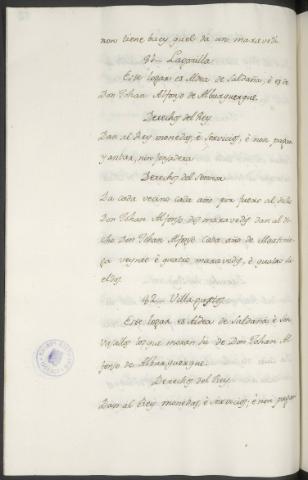 non tiene buey, quel dá un maravedi.
Este logar es Aldea de Saldaña, é es de
Don Johan Alfonso de Alburquerque.
Derechos del Rey
Dan al Rey monedas, é servicios, é non pagan
yantar, nin fonsadera
Derechos del Sennor
Da cada vecino cada año por fuero al dicho
Don Johan Alfonso dos maravedis dan al di-
cho Don Johan Alfonso cada año de Martinie-
ga veynte é quatro maravedis, é quatro su-
eldos.
82.. Villa
Este logar es Aldea de Saldaña, é son
Vasallos los que moran hi de Don Johan Al-
fonso de Alburquerque.
Derechos del Rey
Dan al Rey monedas, é servicios, é non pagan